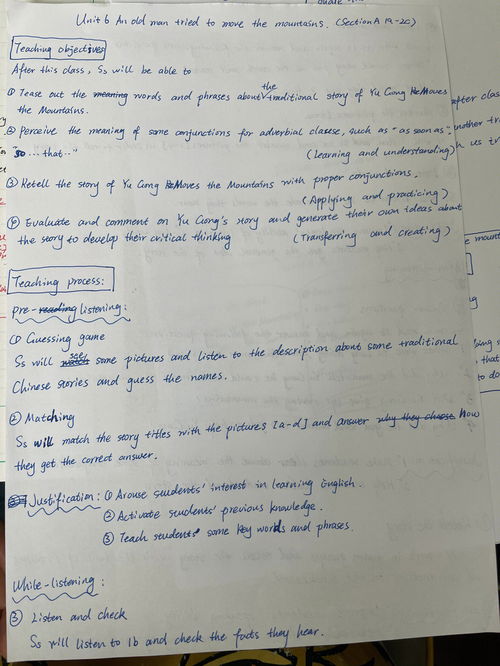 Unit 6 An old man tried to move the mountains. (Section A 1a-2c)
Teaching objectives
After this class, Ss will be able to
① Tease out the meaning words and phrases about the traditional story of Yu Gong Moves
the Mountains.
② Perceive the meaning of some conjunctions for adverbial clause, such as "as soon as",
"so ... that..." (Learning and understanding)
③ Retell the story of Yu Gong Moves the Mountains with proper conjunctions.
(Applying and practicing)
④ Evaluate and comment on Yu Gong's story and generate their own ideas about
the story to develop their critical thinking (Transferring and creating)
Teaching process:
Pre-reading listening:
① Guessing game
Ss will watch see some pictures and listen to the description about some traditional
Chinese stories and guess the names.
② Matching
Ss will match the story titles with the pictures [a-d] and answer why they choose how
they get the correct answer.
Justification: ① Arouse students' interest in learning English.
② Activate students' previous knowledge.
③ Teach students some key words and phrases.
While-listening:
③ Listen and check
Ss will listen to 1b and check the facts they hear.
after class